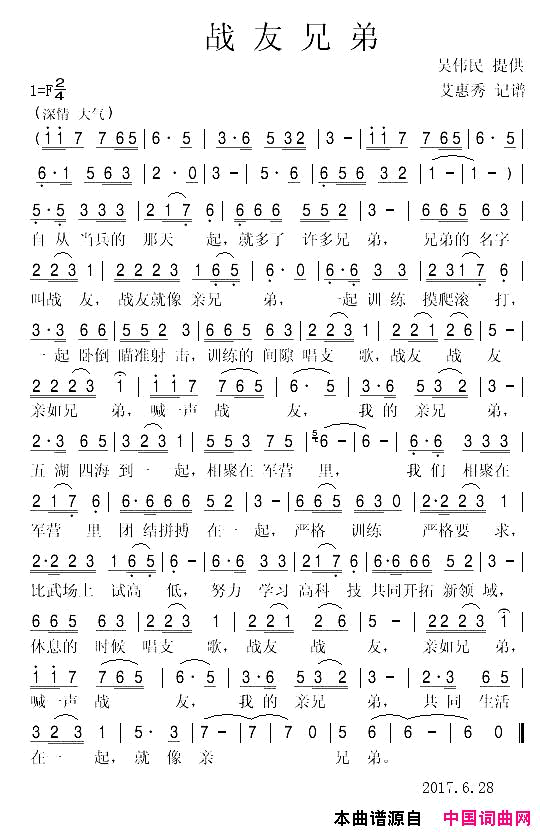 战友兄弟
吴伟民 提供
1=F2/4
艾惠秀 记谱
(深情 大气)
(1 1 7 7 6 5 | 6· 5 | 3·6 5 3 2 | 3 - | 1 1 7 7 6 5 | 6· 5 |
6·1 5 6 3 | 2· 0 | 3 - | 5· 6 | 5 6 5 6 3 2 | 1 - | 1 - ) |
5·5 3 3 3 | 2 1 7 6 | 6 6 6 5 5 2 | 3 - | 6 6 6 3 3 3 |
自从当兵的 那天 起,就多了 许多兄 弟, 兄弟的名字
2 2 3 1 | 2 2 2 3 1 6 5 | 6· 0 | 6·6 3 3 | 2 2 3 1 7 6 |
叫战 友, 战友就像亲兄 弟, 一起训练 摸爬滚 打,
3·3 6 6 | 5 5 2 2 3 3 | 6 6 6 2 2 1 | 2 2 1 2 6 | 5 - |
一起 卧倒 瞄准射击,训练的 间隙唱支 歌,战友 战 友
2 2 2 3 1 | 1 1 7 7 6 5 | 6· 5 | 3·6 5 3 2 | 3 - |
亲如兄 弟,喊一声战 友, 我的 亲兄 弟,
2·3 6 5 | 3 2 3 1 | 2 2 3 7 5 | 6 - | 6 - | 6·6 3 3 3 |
五湖四海 到一 起,相聚在 军营 里, 我们 相聚在
2 1 7 6 | 6·6 6 6 5 5 2 | 3 - | 6 6 5 6 3 0 | 2·2 2 3 1 |
军营 里 团结拼搏 在一 起,严格 训练 严格要 求,
2·2 2 3 1 6 5 | 6 - | 6·6 3 3 | 2 2 1 7 6 | 6·6 6 6 5 5 2 | 3 - |
比武场上 试高 低, 努力 学习 高科 技 共同开拓 新领 域,
6 6 6 2 2 1 | 2 2 1 2 6 | 5 - | 2·2 2 3 1 |
休息的 时候 唱支 歌,战友 战 友, 亲如兄 弟,
1 1 7 7 6 5 | 6· 5 | 3·6 5 3 2 | 3· 5 | 6 6 6 5 |
喊一声战 友, 我的 亲兄 弟, 共同 生活
3 2 3 1 | 5· 3 | 7 - | 7 7 0 | 5 6 | 6 - | 6 - | 6 0 ‖
在一 起, 就像 亲 兄 弟。
2017.6.28
本曲谱源自 中国词曲网